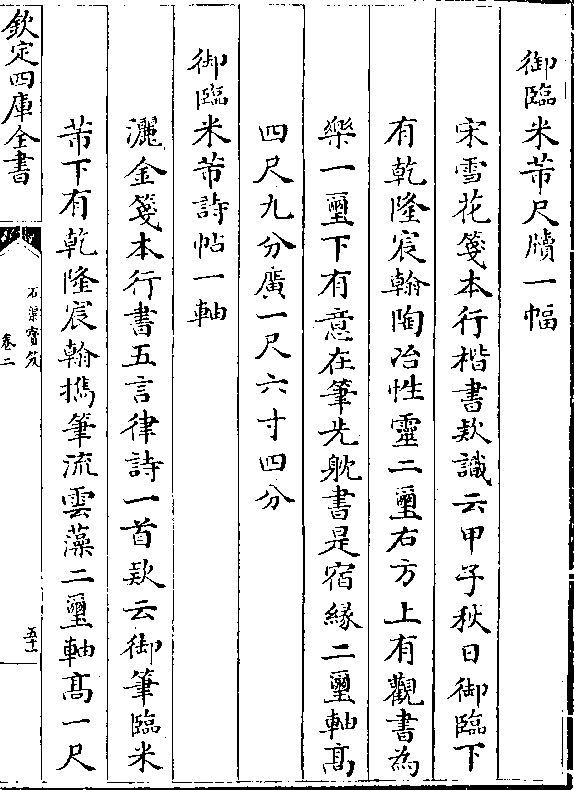 御臨米芾尺牘一幅
宋雪花箋本行楷書款識云甲子秋日御臨下
有乾隆宸翰陶冶性靈二璽右方上有觀書為
樂一璽下有意在筆先躭書是宿緣二璽軸髙
四尺九分廣一尺六寸四分
御臨米芾詩帖一軸
灑金箋本行書五言律詩一首款云御筆臨米
芾下有乾隆宸翰擕筆流雲藻二璽軸髙一尺
欽定四庫全書
石渠寶笈
卷二